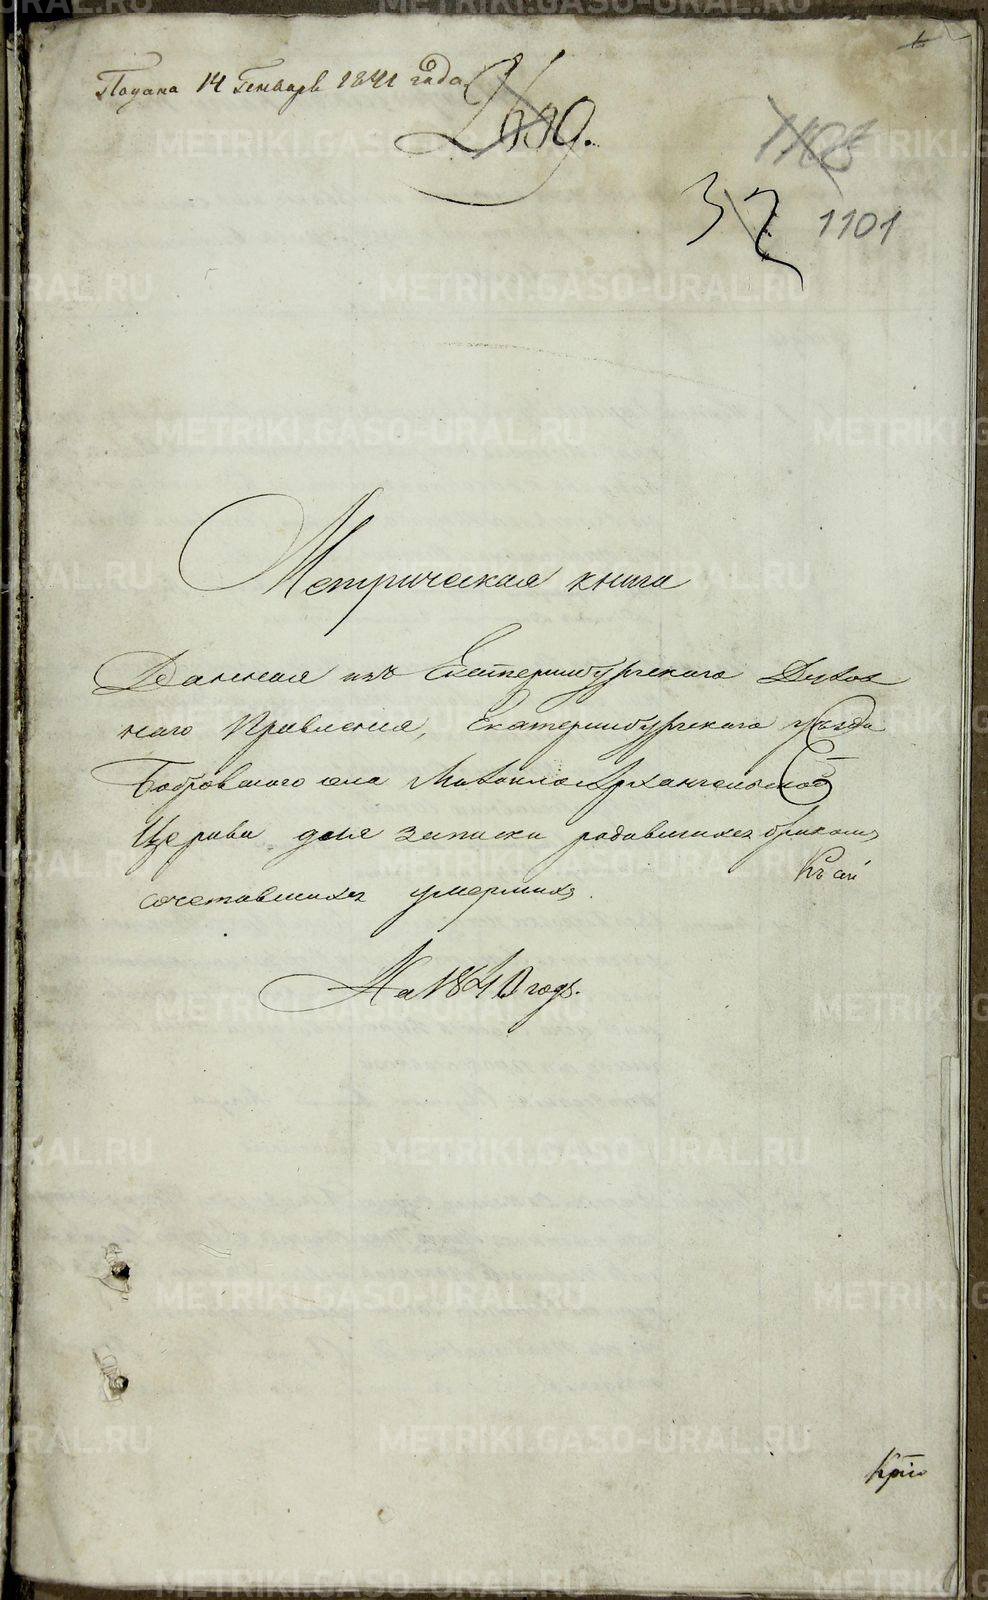 Подана 14 Генваря 1841 года
1101
Метрическая книга
Данная изъ Екатеринбургскаго Духов
наго Правления, Екатеринбургскаго уѣзда
Бобровскаго села Михаило Архангельской
Церкви для записки родившихся бракомъ
сочетавшихся умершихъ.
Къ сей
На 1840 годъ.
METRIKI.GASO-URAL.RU